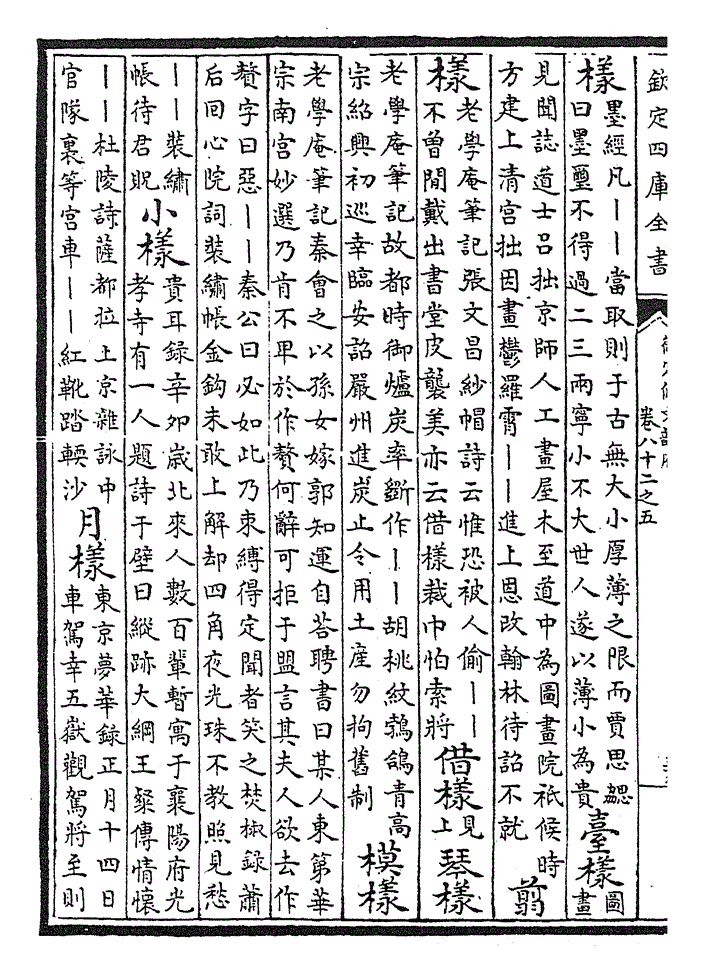 欽定四庫全書
卷八十二之五
樣
墨經凡——當取則于古無大小厚薄之限而賈思勰
曰墨璽不得過二三兩寧小不大世人遂以薄小為貴
臺樣
圖
畫
見聞誌道士吕拙京師人工畫屋木至道中為圖畫院祇候時
方建上清宫拙因畫鬱羅霄——進上恩改翰林待詔不就
翦
樣
老學庵筆記張文昌紗帽詩云惟恐被人偷——
不曽閒戴出書堂皮襲美亦云借樣裁巾怕索將
借樣
見
上
琴樣
老學庵筆記故都時御爐炭率斵作——胡桃紋鶉鴿青高
宗紹興初巡幸臨安詔嚴州進炭止令用土産勿拘舊制
模樣
老學庵筆記秦會之以孫女嫁郭知運自荅聘書曰某人東第華
宗南宫妙選乃肯不畀於作贅何辭可拒于盟言其夫人欲去作
贅字曰惡——秦公曰必如此乃束縛得定聞者笑之焚椒録蕭
后回心院詞裝繡帳金鈎未敢上解却四角夜光珠不教照見愁
——裝繡
帳待君貺
小樣
貴耳録辛夘歲北來人數百輩暫寓于襄陽府光
孝寺有一人題詩于壁曰縱跡大綱王粲傳情懷
——杜陵詩薩都拉上京雜詠中
官隊裏等宫車——紅靴踏輭沙
月樣
東京夢華録正月十四日
車駕幸五嶽觀駕將至則